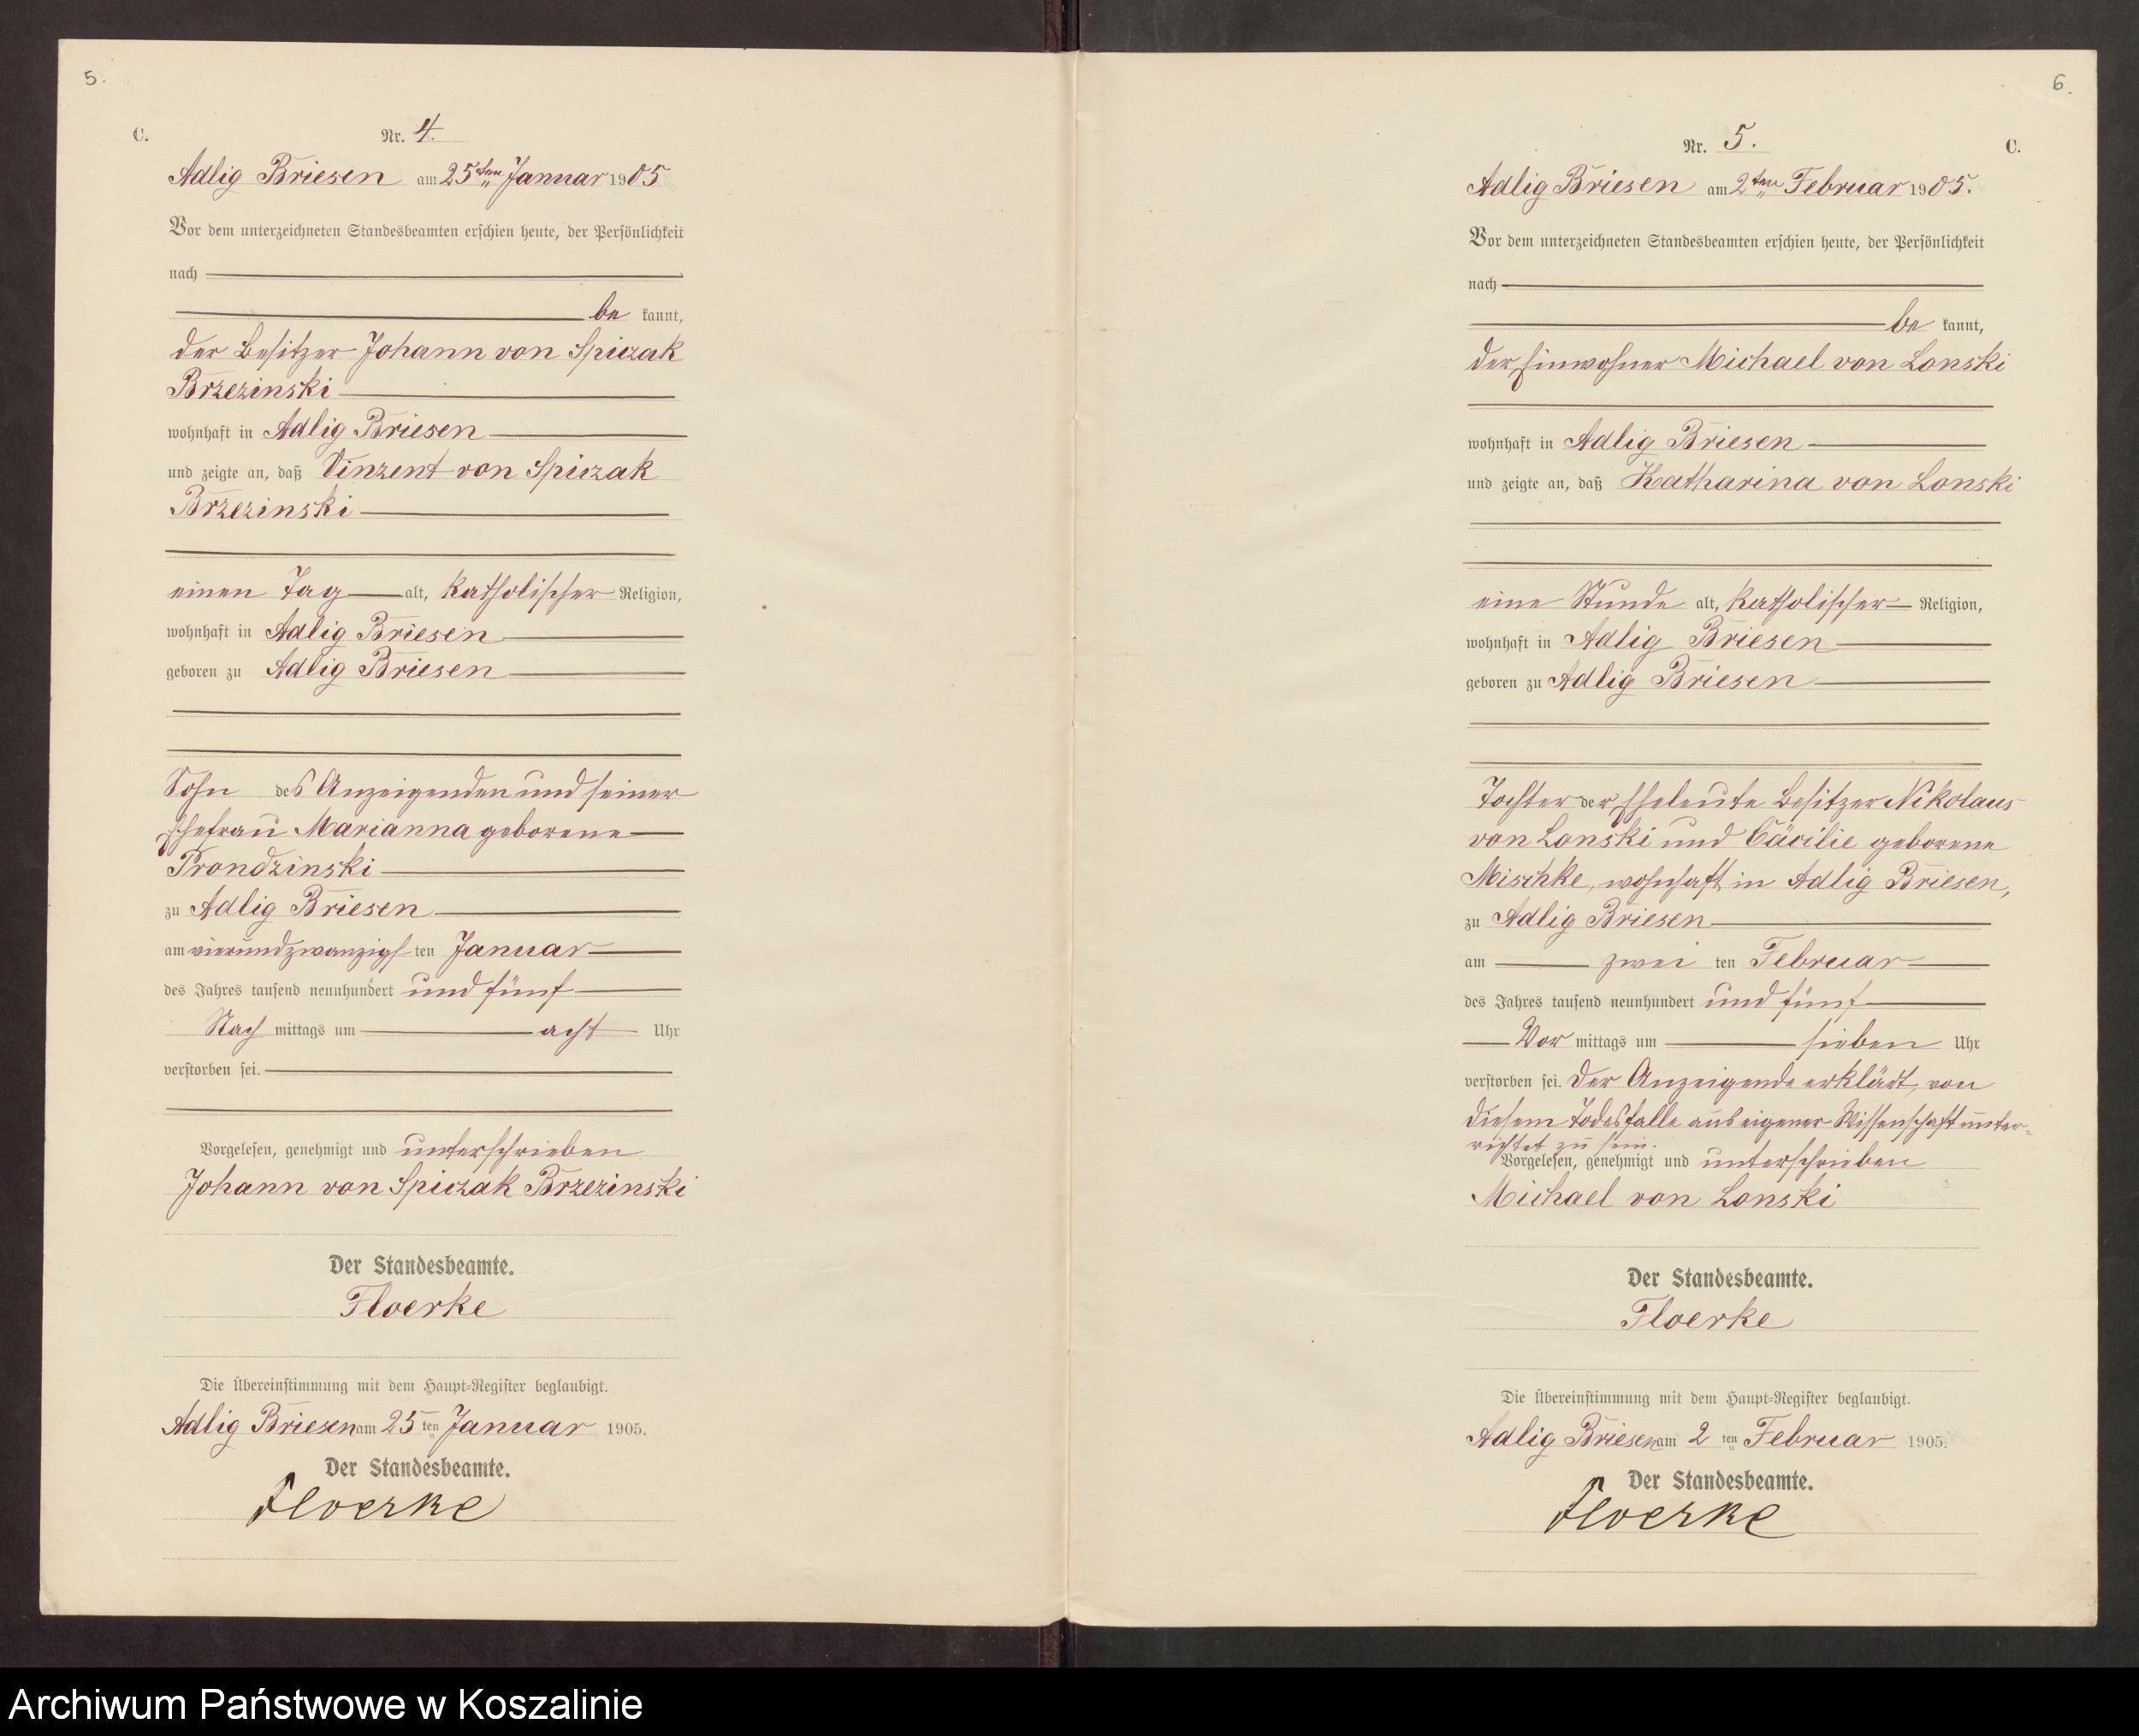 5.
C.
Nr. 4.
Adlig Briesen am 25ten Januar 1905
Vor dem unterzeichneten Standesbeamten erschien heute, der Persönlichkeit
nach
be kannt,
der Besitzer Johann von Spiczak
Brzezinski
wohnhaft in Adlig Briesen
und zeigte an, daß Vinzent von Spiczak
Brzezinski
einen Tag alt, katholischer Religion,
wohnhaft in Adlig Briesen
geboren zu Adlig Briesen
Sohn des Anzeigenden und seiner
Ehefrau Marianna geborene
Prondzinski
zu Adlig Briesen
am vierundzwanzigs ten Januar
des Jahres tausend neunhundert und fünf
Nach mittags um acht Uhr
verstorben sei.
Vorgelesen, genehmigt und unterschrieben
Johann von Spiczak Brzezinski
Der Standesbeamte.
Floerke
Die Übereinstimmung mit dem Haupt-Register beglaubigt.
Adlig Briesen am 25ten Januar 1905.
Der Standesbeamte.
Floerke
6.
Nr. 5.
C.
Adlig Briesen am 2ten Februar 1905.
Vor dem unterzeichneten Standesbeamten erschien heute, der Persönlichkeit
nach
be kannt,
der Einwohner Michael von Lonski
wohnhaft in Adlig Briesen
und zeigte an, daß Katharina von Lonski
eine Stunde alt, katholischer Religion,
wohnhaft in Adlig Briesen
geboren zu Adlig Briesen
Tochter der Eheleute Besitzer Nikolaus
von Lonski und Cäcilie geborene
Mischke, wohnhaft in Adlig Briesen,
zu Adlig Briesen
am zwei ten Februar
des Jahres tausend neunhundert und fünf
Vor mittags um sieben Uhr
verstorben sei. Der Anzeigende erklärt, von
diesem Todesfalle aus eigener Wissenschaft unter-
richtet zu sein.
Vorgelesen, genehmigt und unterschrieben
Michael von Lonski
Der Standesbeamte.
Floerke
Die Übereinstimmung mit dem Haupt-Register beglaubigt.
Adlig Briesen am 2ten Februar 1905.
Der Standesbeamte.
Floerke
Archiwum Państwowe w Koszalinie